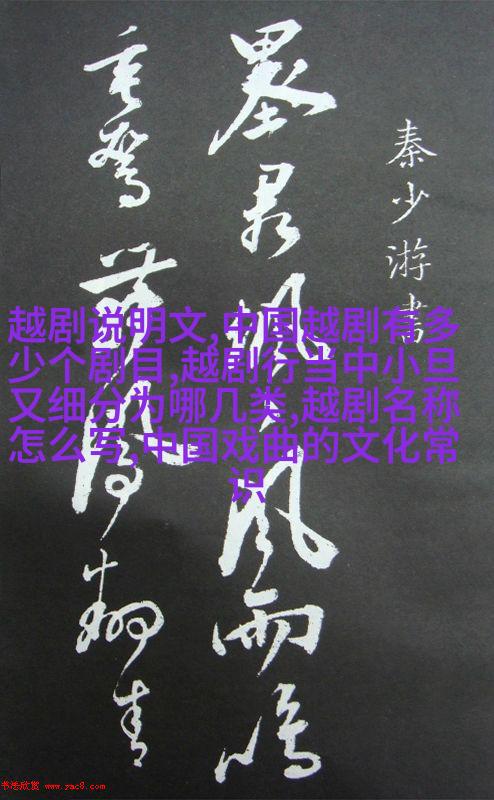 秦少游書
墨君風雨鳴
舞鳳翻青
越剧说明文,中国越剧有多
少个剧目,越剧行当中小旦
又细分为哪几类,越剧名称
怎么写,中国戏曲的文化常
识
书法欣赏 www.yac8.com